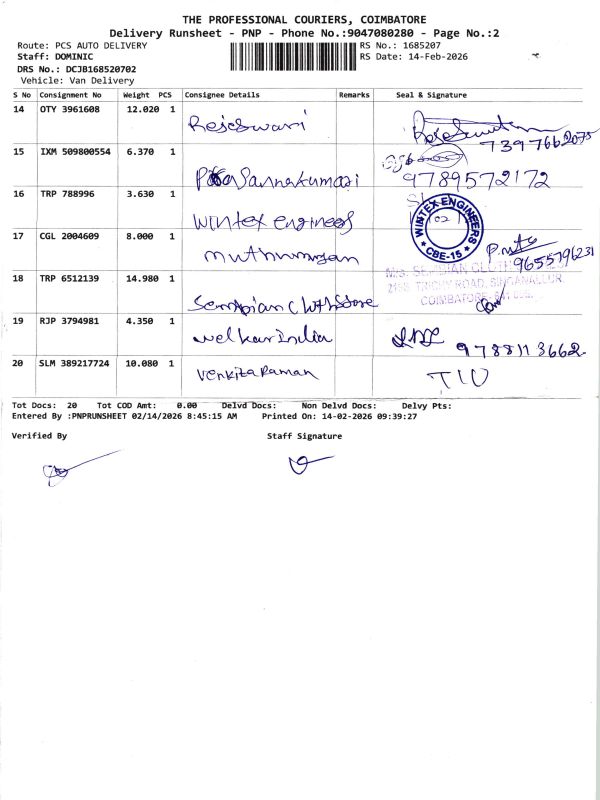 THE PROFESSIONAL COURIERS, COIMBATORE
Delivery Runsheet - PNP - Phone No.:9047080280 - Page No.:2
Route: PCS AUTO DELIVERY
RS No.: 1685207
Staff: DOMINIC
RS Date: 14-Feb-2026
DRS No.: DCJB168520702
Vehicle: Van Delivery
S No Consignment No Weight PCS Consignee Details Remarks Seal & Signature
14 OTY 3961608 12.020 1 Rejeswari 7397662075
15 IXM 509800554 6.370 1 9789572172
16 TRP 788996 3.630 1 Wintex engineers WINTEX ENGINEERS CBE-15
17 CGL 2004609 8.000 1 muthumurugan 9655796231
18 TRP 6512139 14.980 1 Sempian Cloth Store M/S. SEMBIAN CLOTH
2168, TRICHY ROAD, SINGANALLUR,
COIMBATORE
19 RJP 3794981 4.350 1 welkar India 9788113662
20 SLM 389217724 10.080 1 Venkitaraman
Tot Docs: 20 Tot COD Amt: 0.00 Delvd Docs: Non Delvd Docs: Delvy Pts:
Entered By :PNPRUNSHEET 02/14/2026 8:45:15 AM Printed On: 14-02-2026 09:39:27
Verified By Staff Signature